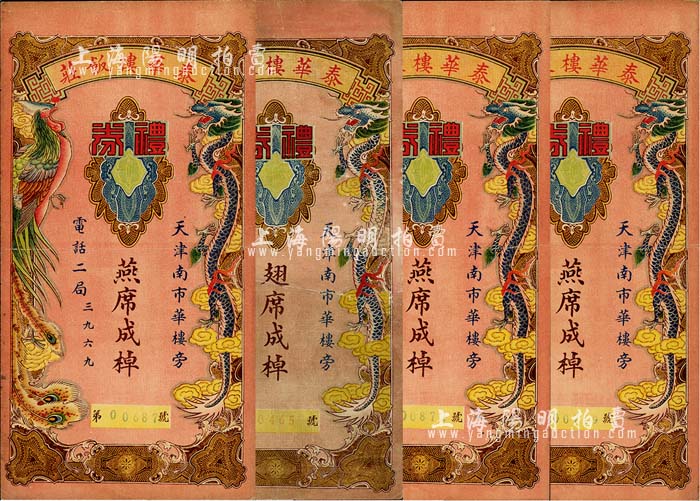 上海陽明拍賣
www.yangmingauction.com
泰華樓飯莊
禮券
天津南市華樓旁
燕席成棹
電話二局三九六九
第00687號
泰華樓
禮券
天津南市華樓旁
翅席成棹
號
泰華樓
禮券
天津南市華樓旁
燕席成棹
號
泰華樓
禮券
天津南市華樓旁
燕席成棹
號
上海陽明拍賣
www.yangmingauction.com
上海陽明拍賣
www.yangmingauction.com